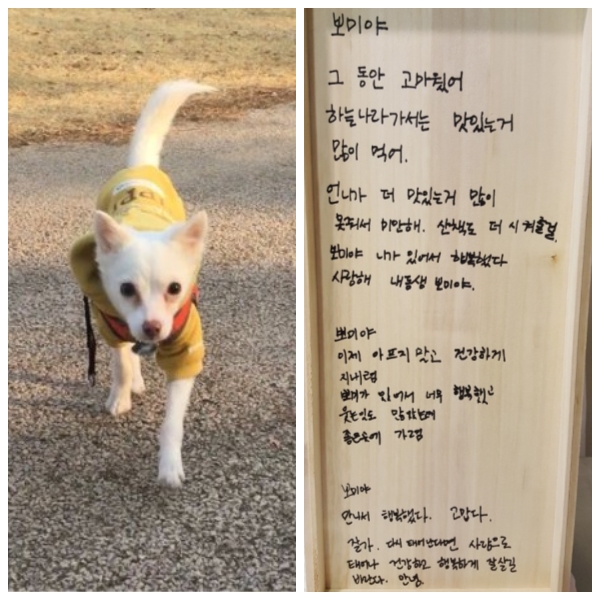 뽀미야
그 동안 고마웠어
하늘나라가서는 맛있는거
많이 먹어.
언니가 더 맛있는거 많이
못줘서 미안해. 산책도 더 시켜줄걸
뽀미야 니가 있어서 행복했다
사랑해 내동생 뽀미야.
뽀미야
이제 아프지 말고 건강하게
지내렴
뽀미가 있어서 너무 행복했고
웃는일도 많았는데
좋은곳에 가렴
뽀미야
만나서 행복했다. 고맙다.
잘가. 다시 태어난다면 사람으로
태어나 건강하고 행복하게 잘살길
바란다. 안녕.